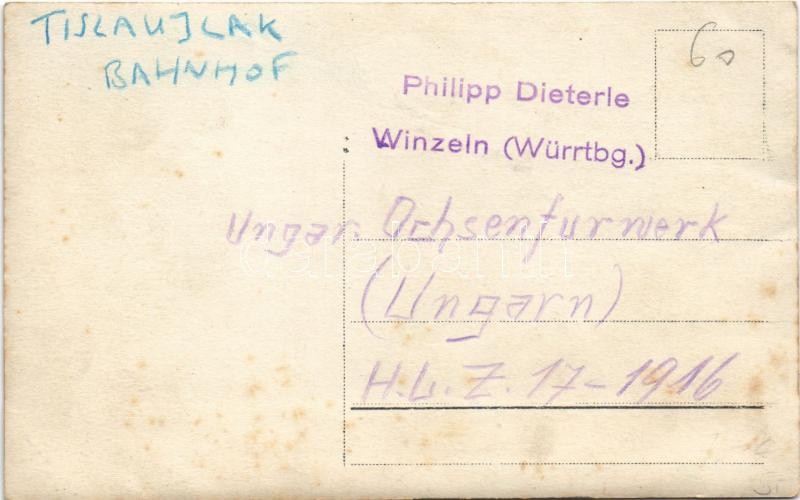 TISZAUJLAK
BAHNHOF
60
Philipp Dieterle
Winzeln (Württbg.)
Ungar. Ochsenfurwerk
(Ungarn)
H.L.Z. 17-1916